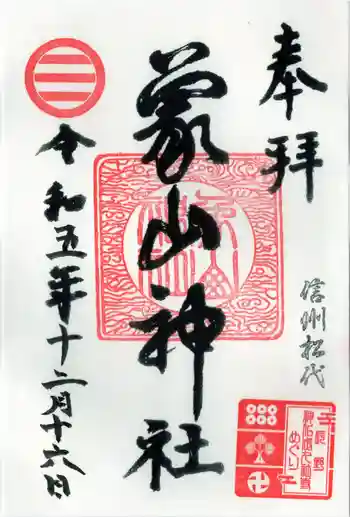 奉拝
信州松代
象山神社
令和五年十二月十六日
めぐり